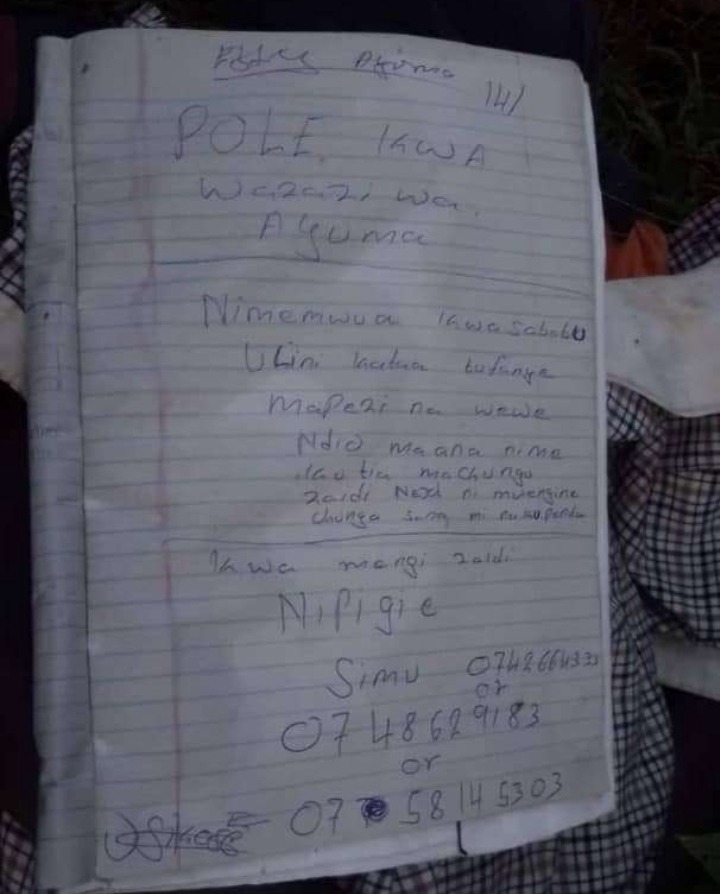 Ayuma
141
POLE KWA
Wazazi wa
Ayuma
Nimemwua kwasababu
Ulini kataa tufanye
mapezi na wewe
Ndio maana nime
kutia machungu
zaidi Next ni mwengine
chunga sana mi nakupenda
Kwa mengi zaidi
Nipigie
Simu
or
0748629183
or
07 58145303